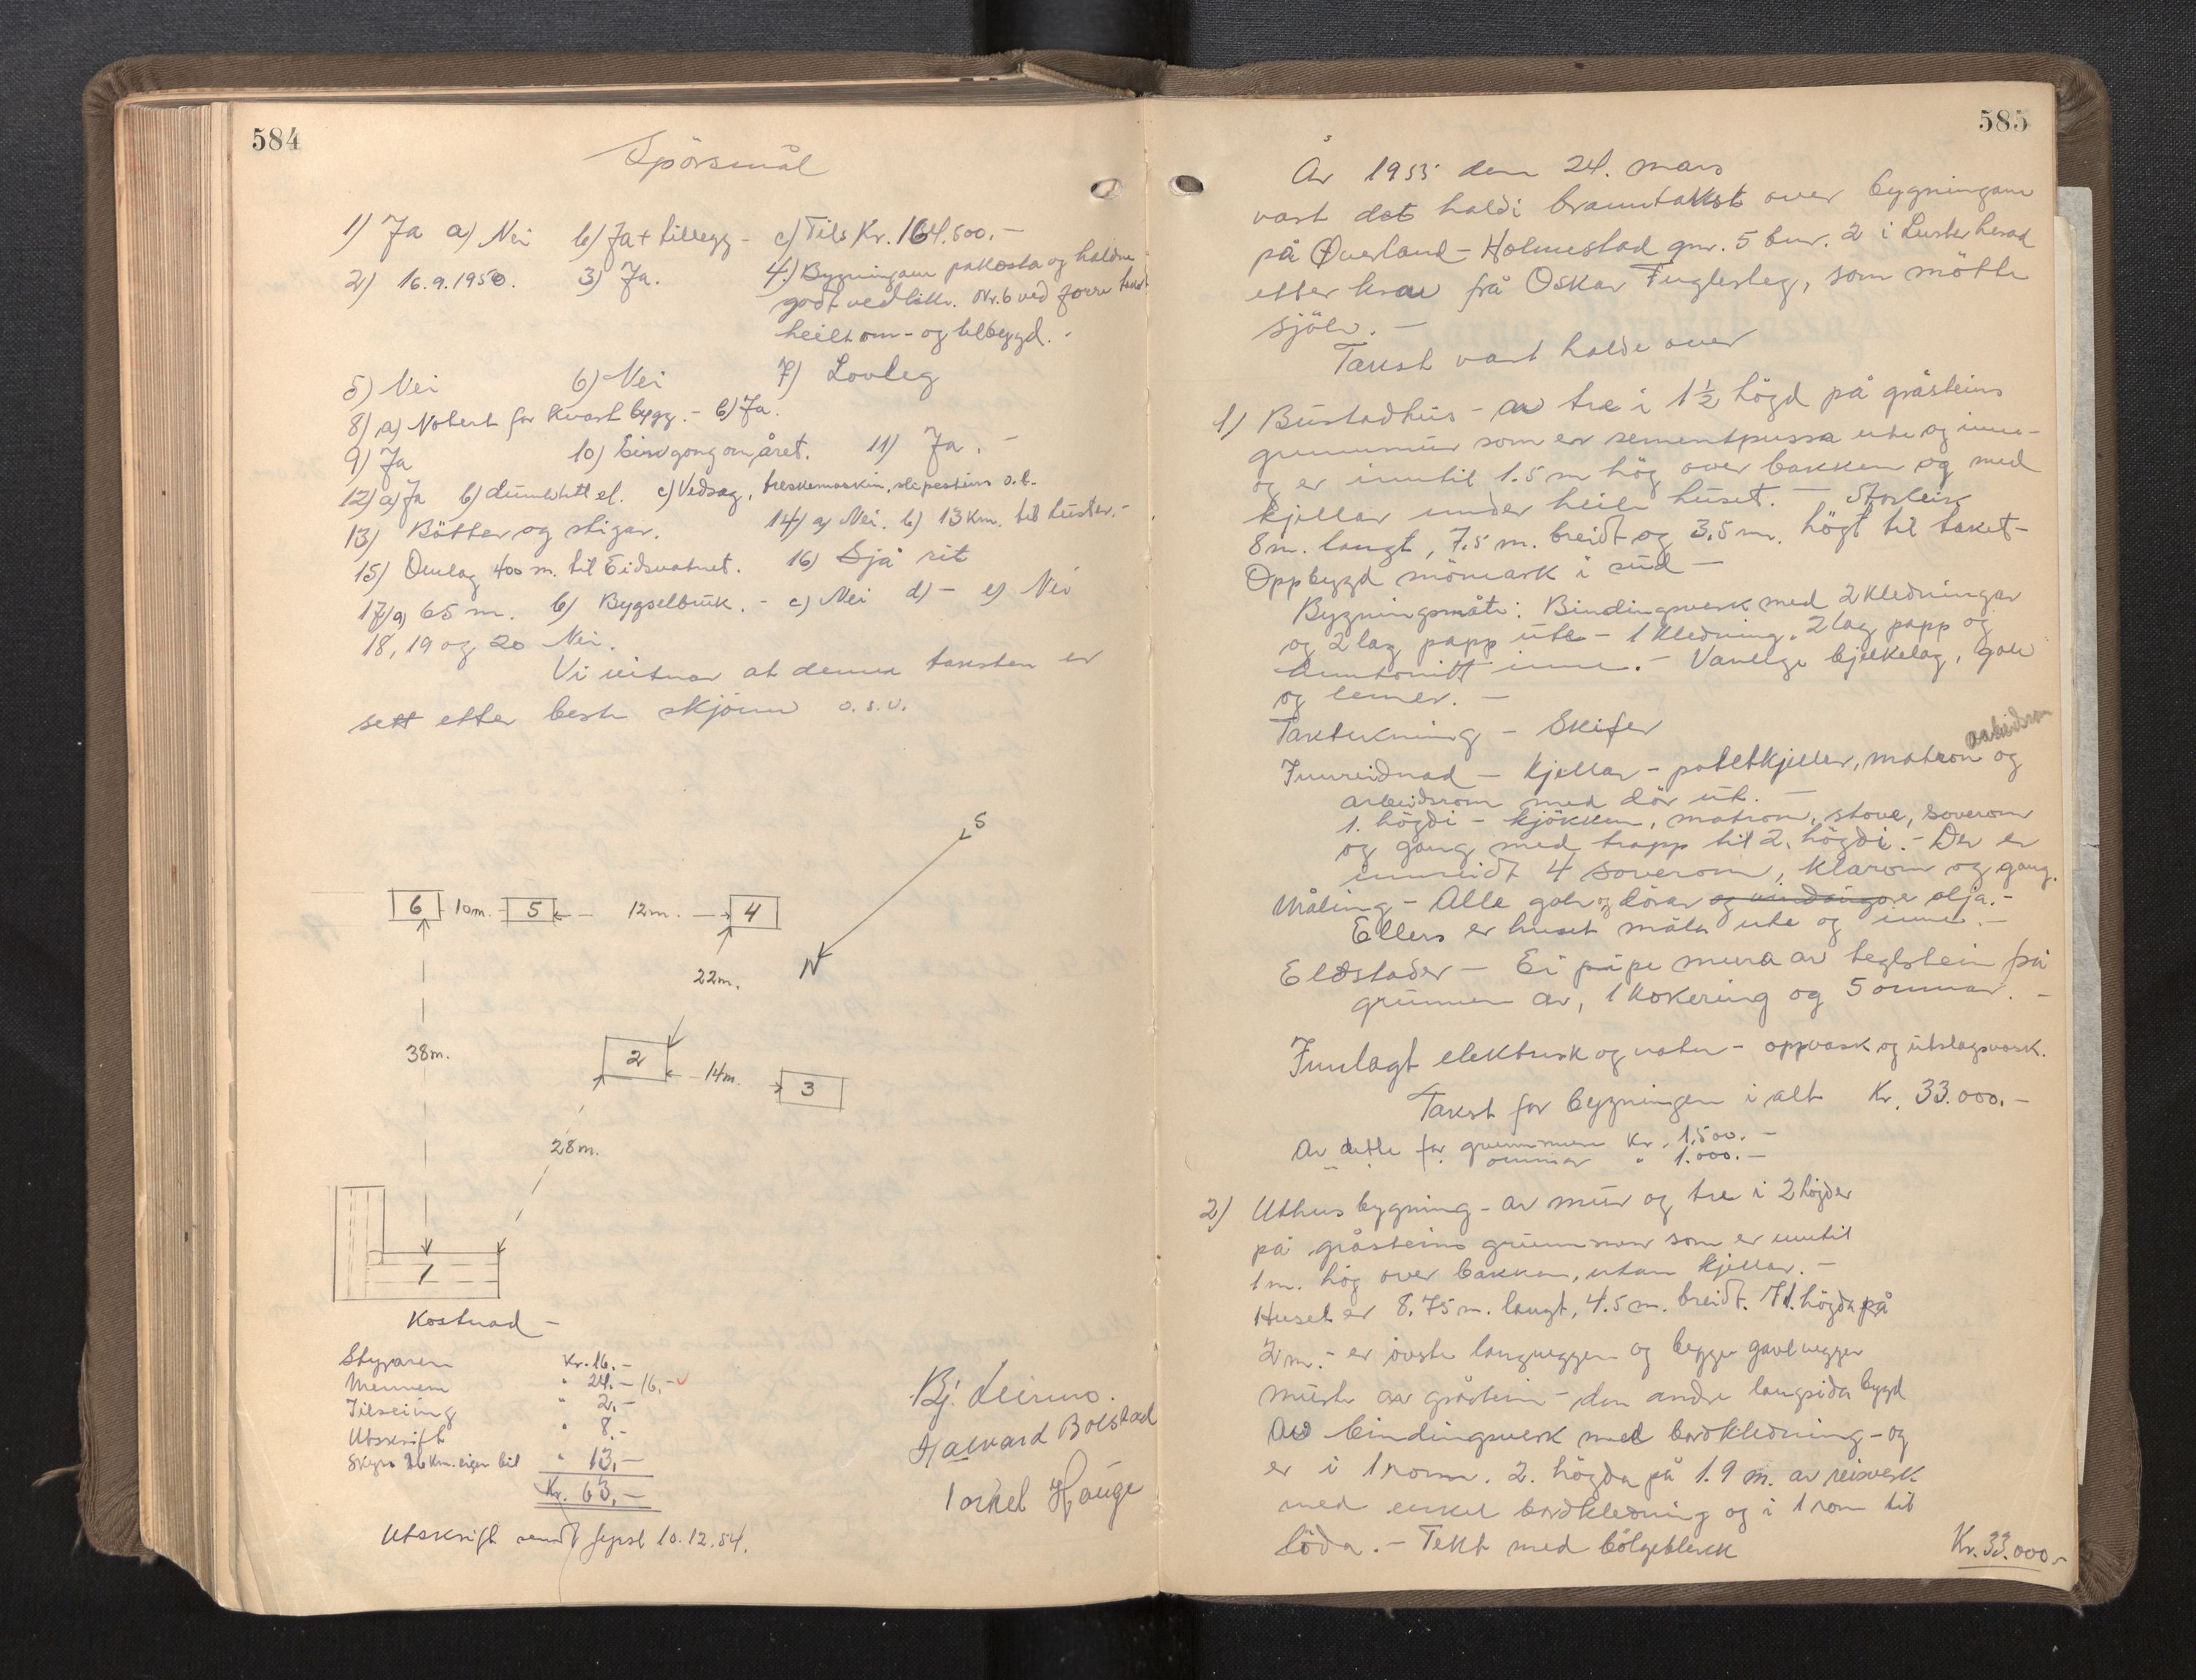 584
Spörsmål
1) Ja a) Nei b) Ja + tillegg - c) Tils Kr. 164.500.-
2) 16.9.1950. 3) Ja. 4) Bygningane påkosta og haldne
godt vedlike. Nr. 6 ved förre takst
heilt om- og tilbygd. -
5) Nei 6) Nei 7) Lovleg
8) a) Notert for kvart bygg. - b) Ja.
9) Ja 10) Ein gong om året. 11) Ja. -
12) a) Ja b) Lumbhtt el. c) Vedsag, treskemaskin, slipestein o.l.
13) Bötter og stigar. 14) a) Nei. b) 13 km. til Luster. -
15) Omlag 400 m. til Eidsvatnet. 16) Sjå rit
17) a) 65 m. b) Bygselbruk. - c) Nei d) - e) Nei
18, 19 og 20 Nei.
Vi vitnar at denne taksten er
sett etter beste skjönn o.s.v.
S
N
6 10m. 5 12m. 4
22m.
38m.
2 14m. 3
28m.
1
Kostnad -
Styraren Kr. 16.-
Mennene " 24.- 16,-
Tilseing " 2,-
Utskrift " 8.-
Skyss 26 km. eigen bil " 13,-
Kr. 63,-
Utskrift sendt 10.12.54.
Bj. Leirmo.
Halvard Bolstad
Torkel Hauge
585
År 1955 den 24. mars
vart det haldi branntakst over bygningane
på Överland - Holmestad gnr. 5 bnr. 2 i Luster herad
etter krav frå Oskar Fuglesteg, som mötte
sjölv. -
Takst vart halde over
1) Bustadhus - av tre i 1½ högd på gråsteins
grunnmur som er sementpussa ute og inne -
og er inntil 1.5 m hög over bakken og med
kjellar under heile huset. - Storleik
8 m. langt, 7.5 m. breidt og 3,5 m. högt til taket -
Oppbygd mönark i süd -
Bygningsmåte: Bindingsverk med 2 kledningar
og 2 lag papp ute - 1 kledning, 2 lag papp og
huntonitt inne. - Vanlege bjelkelag, golv
og lemer. -
Taktekning - Skifer
arbeidsrom
Innreidnad - Kjellar - potetkjeller, matrom og
arbeidsrom med dör ut. -
1. högdi - kjökken, matrom, stove, soverom
og gang med trapp til 2. högdi. - Der er
innreidt 4 soverom, klårom og gang.
Måling - Alle golv og dörar og vindaugo er olja. -
Ellers er huset måla ute og inne. -
Eldstader - Ei pipe mura av teglstein frå
grunnen av, 1 kokering og 5 omnar. -
Innlagt elektrisk og vatn - oppvask og utslagsvask.
Takst for bygningen i alt Kr. 33.000.-
Av dette for grunnmuren Kr. 1.500.-
" " " omnar " 1.000.-
2) Uthusbygning - av mur og tre i 2 högder
på gråsteins grunnmur som er inntil
1 m. hög over bakken, utan kjellar. -
Huset er 8.75 m. langt, 4.5 m. breidt. I 1. högda på
2 m. - er övste langveggen og begge gavlvegger
murte av gråstein - den andre langsida bygd
av bindingsverk med bordkledning - og
er i 1 rom. 2. högda på 1.9 m. av reisverk
med enkel bordkledning og i 1 rom til
löda. - Tekt med bölgeblekk
Kr. 33.000.-